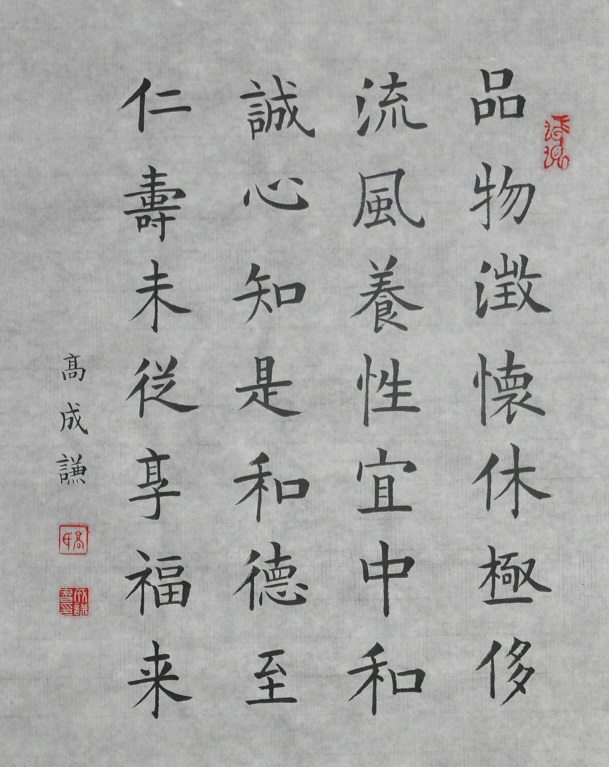 品物澂懷休極侈
流風養性宜中和
誠心知是和德至
仁壽未従享福来
高成謙